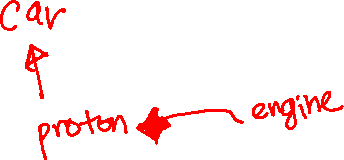 Car
proton engine